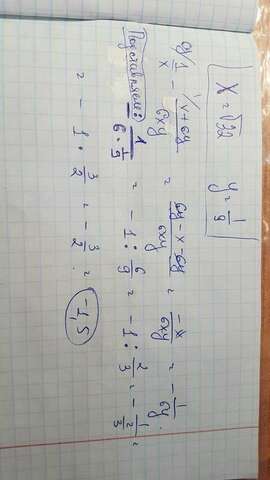 x = √32   y = 1/9
6y/ 1/x − 1/ x+6y/6xy = 6y − x − 6y/6xy = −x/6xy = − 1/6y.
Подставляем: − 1/6 · 1/9 = − 1 : 6/9 = − 1 : 2/3 = − 1/ 2/3 =
= − 1 · 3/2 = − 3/2 = −1,5